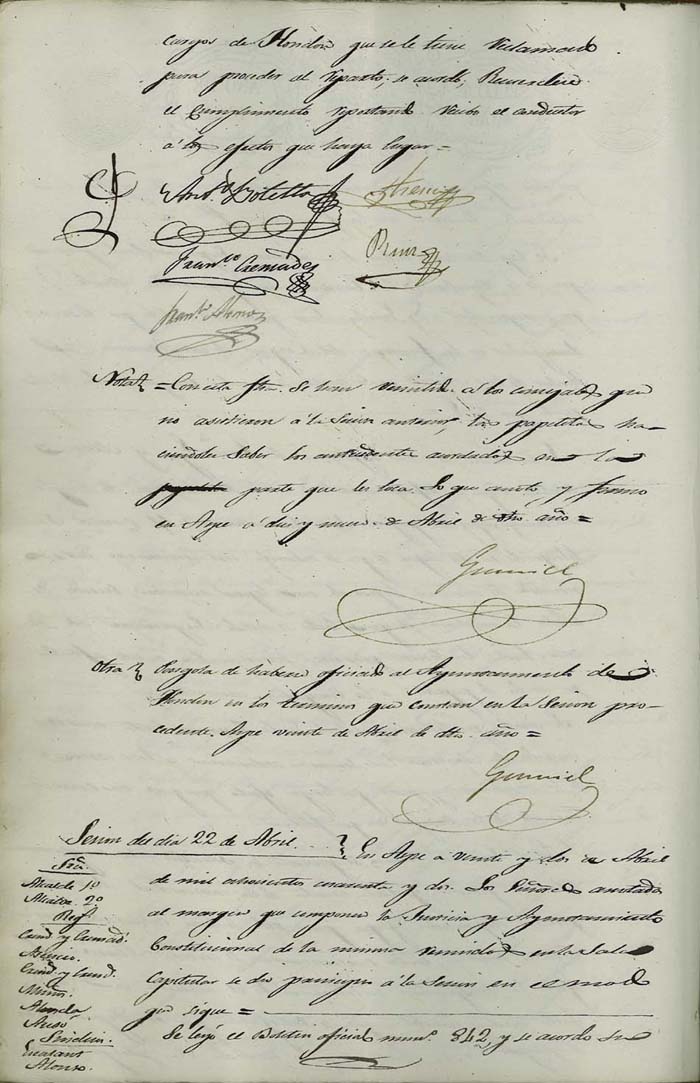 cargos de Hondon que se le tiene reclamado
para proceder al reparto; se acordó,
el cumplimiento reportando recibo el conductor
á los efectos que haya lugar =
Ant.º Botella
Fran.co Cremades
Nota = Con esta fha. se han remitido á los concejales que
no asistieron á la Sesion anterior, las papeletas ha-
ciendoles saber los antecedentes acordados en la
parte que les toca. Lo que anoto y firmo
en Aspe á diez y nueve de Abril de dho. año =
Gumiel
Otra de haberse oficiado al Ayuntamiento de
Hondon en los terminos que constan en la Sesion pre-
cedente. Aspe veinte de Abril de dho. año =
Gumiel
Sesion del dia 22 de Abril. En Aspe a veinte y dos de Abril
de mil ochocientos cuarenta y dos. Los Señores anotados
al margen que componen la Justicia y Ayuntamiento
Constitucional de la misma reunidos en la Sala
Capitular se dio principio á la Sesion en el modo
que sigue =
Se leyó el Boletin oficial num.º 842, y se acordo su
Sres.
Alcalde 1º
Alcalde 2º
Reg.s
Almodo.
Sindicos.
Alonso.